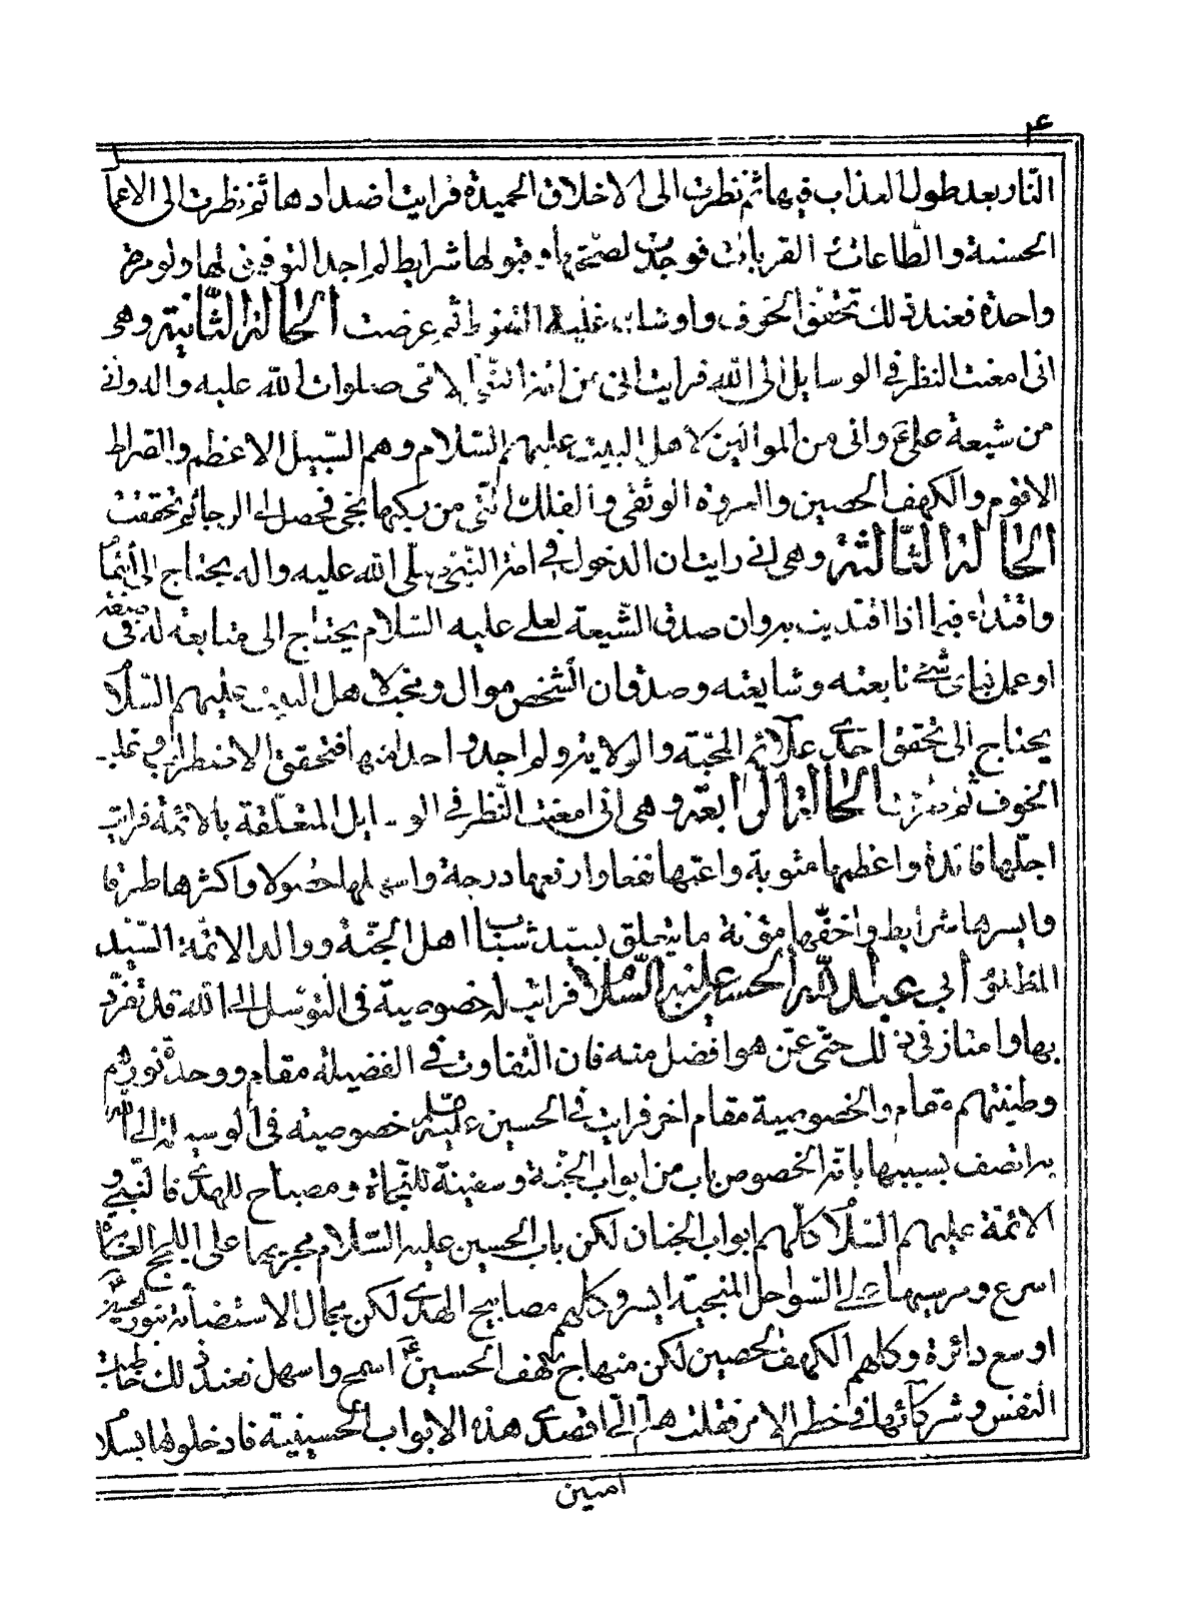 ۴
النّار بعد طول العذاب فيها ثم نظرت الى الاخلاق الحميدة فرايت اضدادها ثم نظرت الى الاعما
الحسنة والطّاعات و القربات فوجدت لصحّتها وقبولها شرايط لم اجد التوفيق لها ولو مرّة
واحدة فعند ذلك تحقّق الخوف واوشك غلبة القنوط ثم عرضت الحالة الثّانية وهى
انى امعنت النظر فى الوسايل الى اللّه فرايت انى من امّة النّبىّ الامّى صلوات اللّه عليه واله وانى
من شيعة علىّ ع وانى من الموالين لاهل البيت عليهم السّلام وهم السّبيل الاعظم والصّراط
الاقوم والكهف الحصين والعروة الوثقى والفلك الّتى من ركبها نجى فحصل لى الرجا ثم تحقّقت
الحالة الثّالثة وهى انى رايت ان الدخول فى امّة النّبىّ صلّى اللّه عليه واله يحتاج الى ائتمام
واقتداء فبما اذا اقتديت به وان صدق الشّيعة لعلى عليه السّلام يحتاج الى متابعة له فى صفة
او عمل فباى شئ تابعته وشايعته وصدق ان الشّخص موال ومحبّ لاهل البيت عليهم السّلا
يحتاج الى تحقق احدى علائم المحبّة والولاية ولم اجد واحدا منها فتحقق الاضطراب و غلب
الخوف ثم عرضت الحالة الرّابعة وهى انى امعنت النّظر فى الوسايل المتعلّقة بالائمّة فرايت
اجلّها فائدة واعظمها مثوبة واعمّها نفعا وارفعها درجة واسهلها حصولا واكثرها طرقا
وايسرها شرايط واخفّها مؤنة ما يتعلق بسيّد شباب اهل الجنّة ووالد الائمّة السّيّد
المظلوم ابى عبد اللّه الحسين عليه السّلام فرايت له خصوصية فى التوسّل الى اللّه قد تفرّد
بها وامتاز فى ذلك حتّى عمّن هو افضل منه فان التّفاوت فى الفضيلة مقام ووحدة نورهم
وطينتهم مقام والخصوصية مقام اخر فرايت فى الحسين ع خصوصية فى الوسيلة الى اللّه
به اتصف بسببها بانّه بالخصوص باب من ابواب الجنّة وسفينة للنّجاة ومصباح للهدى فالنّبى و
الائمّة عليهم السّلا كلّهم ابواب الجنان لكن باب الحسين عليه السّلام مجريها على اللّجج الغامرة
اسرع ومرسيها على السّواحل المنجية ايسر وكلهم مصابيح الهدى لكن مجال الاستضائة بنور الحسين ع
اوسع دائرة وكلهم الكهف الحصين لكن منهاج كهف الحسين ع اسمح واسهل فعند ذلك خاطبت
النّفس وشركائها فى خطر الامر فقلت هلمّ الى اقصدى هذه الابواب الحسينية فادخلوها بسلا
امنين